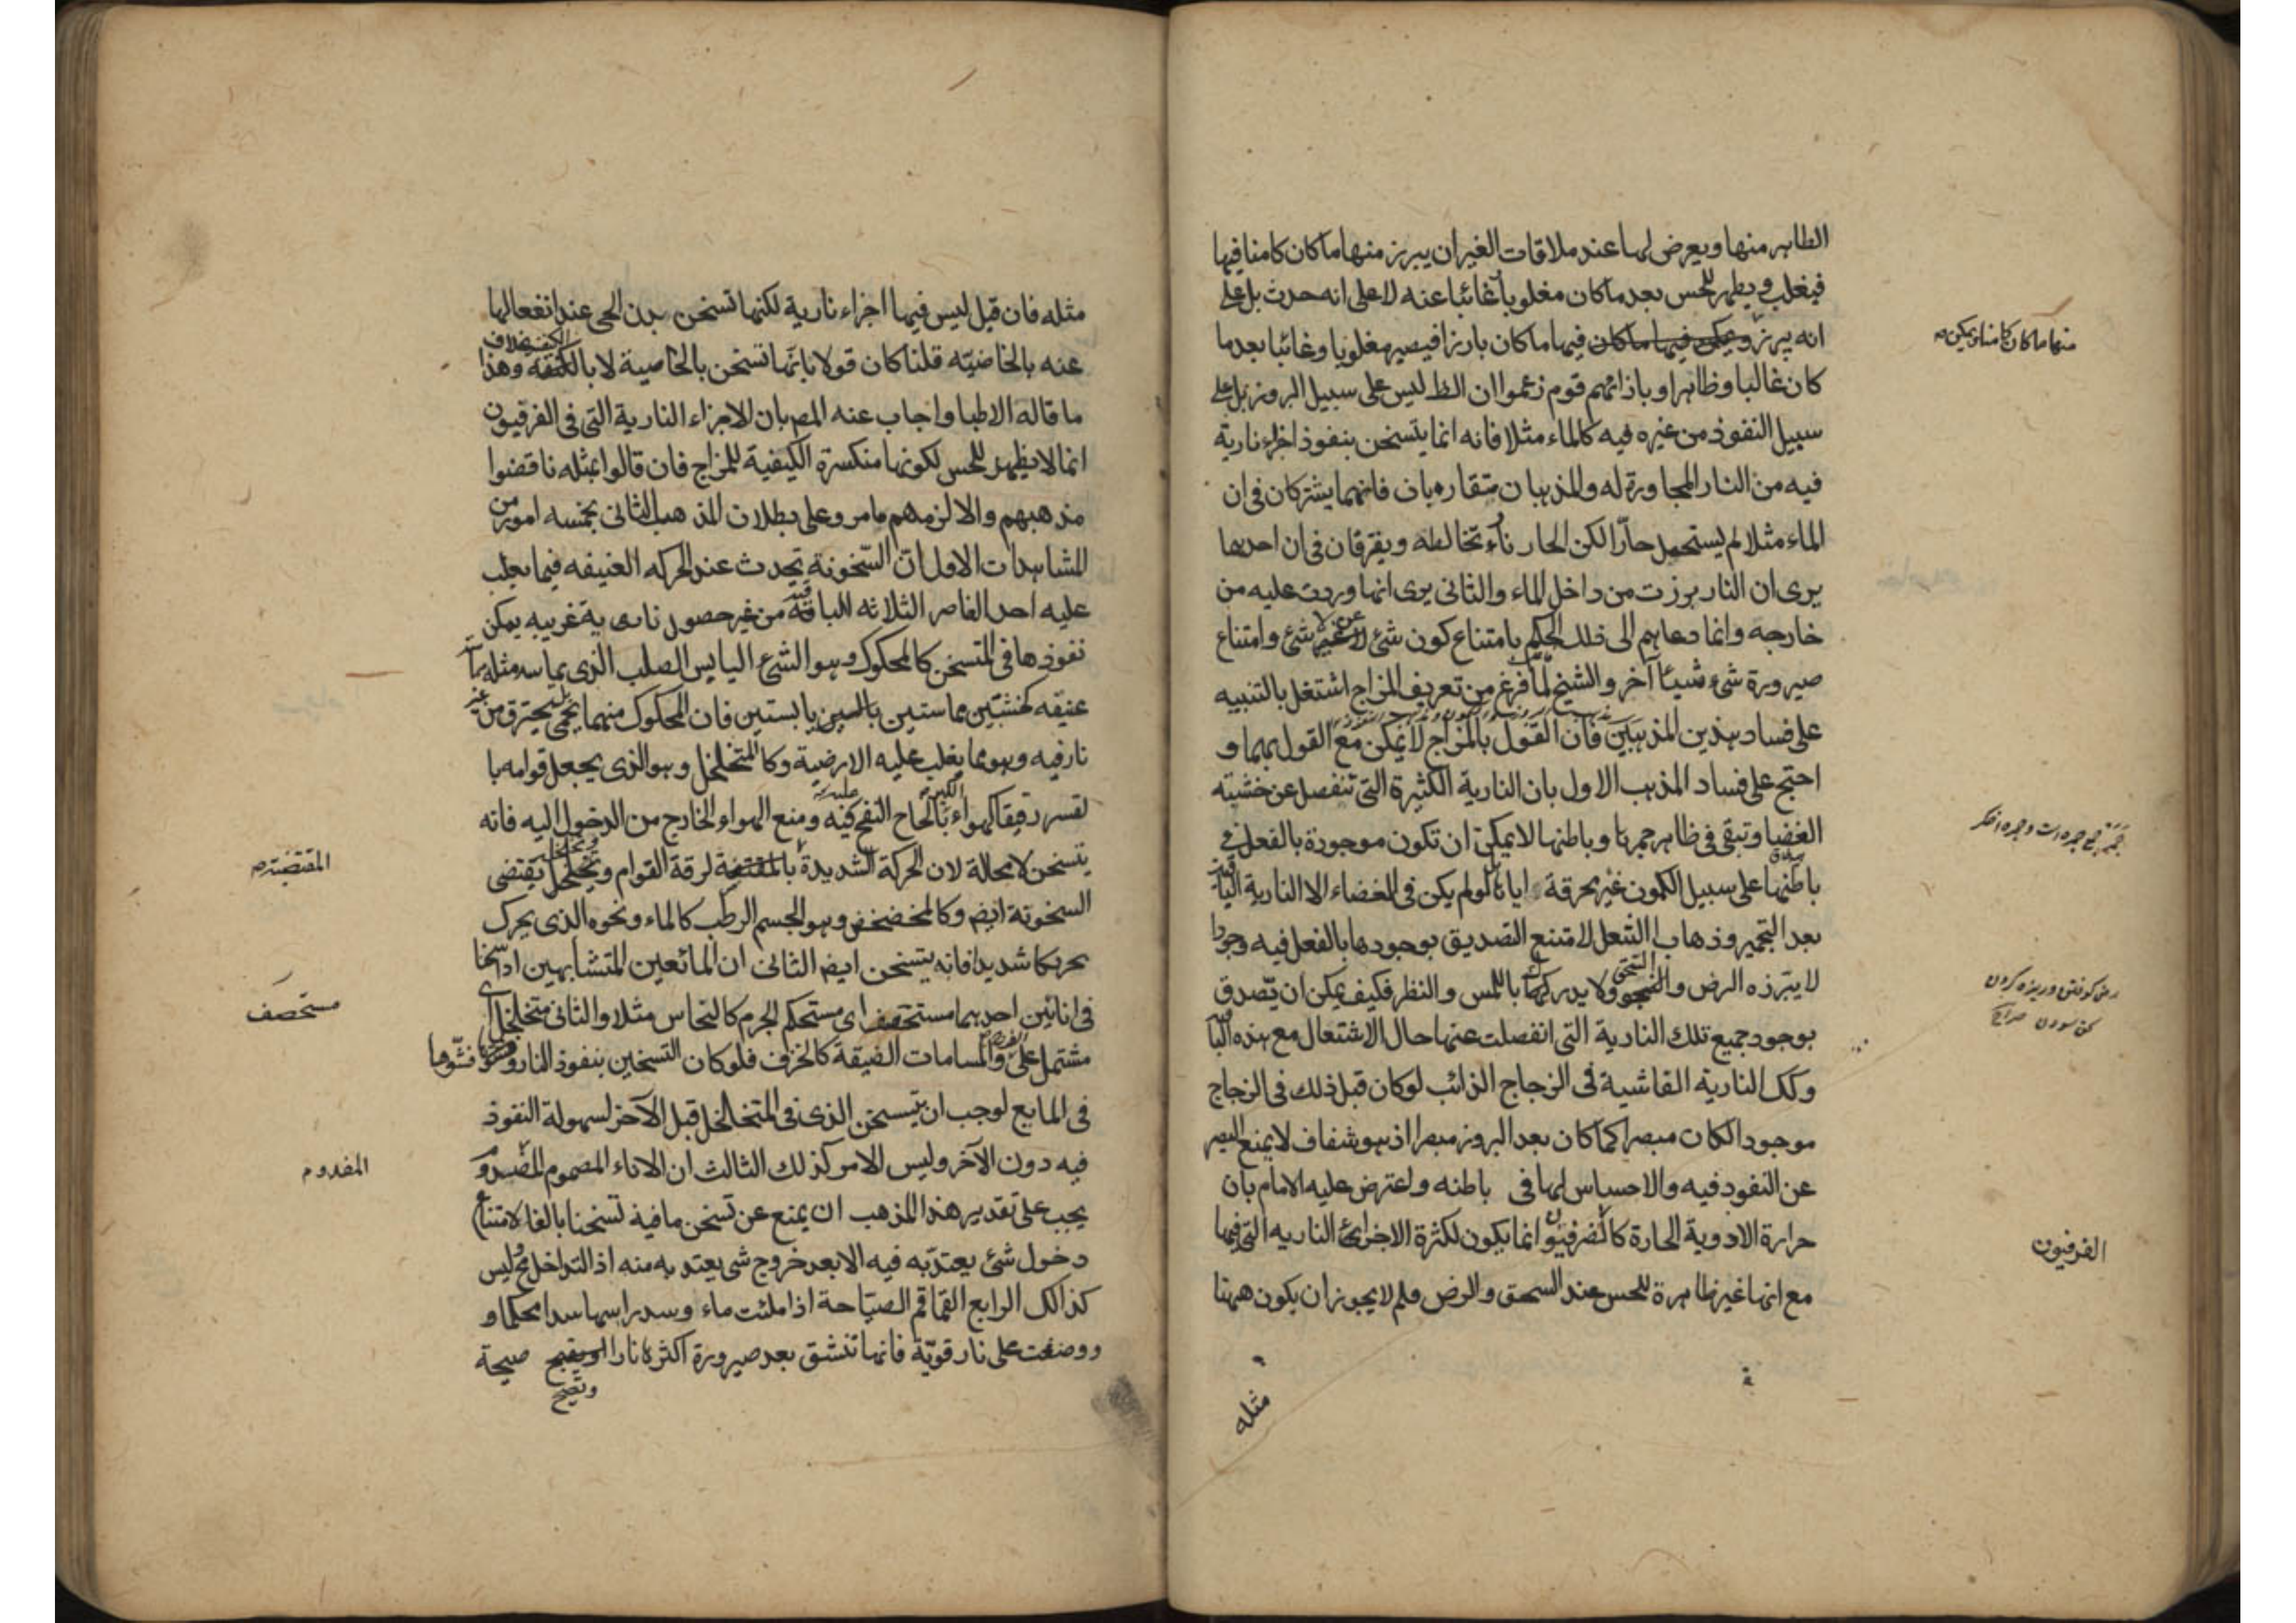 الظاهر منها ويعرض لها عند ملاقات الغير ان يبرز منها ما كان كامنا فيها
فيغلب ويظهر للحس بعد ما كان مغلوبا غائبا عنه لا على انه حدث بل على
انه يبرز ويمكن فيها ما كان فيها ما كان بارزا فيصير مغلوبا وغائبا بعد ما
منها ما كان كامنا ويمكن
كان غالبا وظاهرا وباذائهم قوم زعموا ان الظ ليس على سبيل البروز بل على
سبيل النفوذ من غيره فيه كالماء مثلا فانه انما يتسخن بنفوذ اجزاء نارية
فيه من النار المجاورة له والمذهبان متقاربان فانهما يشتركان فى ان
الماء مثلا لم يستحيل حارّا لكن الحار نار تخالطه ويفترقان فى ان احدها
يرى ان النار برزت من داخل الماء والثانى يرى انها وردت عليه من
خارجه وانما دعاهم الى ذلك الحكم بامتناع كون شئ لا عن شئ وامتناع
صيرورة شئ شيئا آخر والشيخ لما فرغ من تعريف المزاج اشتغل بالتنبيه
على فساد هذين المذهبين فان القول بالمزاج لا يمكن مع القول بهما و
احتج على فساد المذهب الاول بان النارية الكثيرة التى تنفصل عن خشبة
الغضا وتبقى فى ظاهر جمرها وباطنها لا يمكن ان تكون موجودة بالفعل فى
باطنها على سبيل الكمون غير محرقة اياها بل لو لم يكن فى الغضاء الا النارية الباقية
بعد التجمير وذهاب الشعل لامتنع التصديق بوجودها بالفعل فيه وجودا
لا يبرزه الرض والسحق ولا يدركها باللمس والنظر فكيف يمكن ان يصدق
رض كوفتن و ريزه كردن
بوجود جميع تلك النارية التى انفصلت عنها حال الاشتعال مع هذه الباقية
وكك النارية الفاشية فى الزجاج الذائب لو كان قبل ذلك فى الزجاج
موجود الكان مبصرا كما كان بعد البروز مبصرا اذ هو شفاف لا يمنع البصر
عن النفود فيه والاحساس لها فى باطنه واعترض عليه الامام بان
حرارة الادوية الحارة كالفرفيون انما يكون لكثرة الاجزائ الناريه التى فيها
الفرفيون
مع انها غير ظاهرة للحس عند السحق والرض ولم لا يجوز ان يكون ههنا
مثله
مثله فان قيل ليس فيها اجزاء نارية لكنها تسخن بدن الحى عند انفعالها
عنه بالخاصيّه قلنا كان قولا بانّها تسخن بالخاصية لا بالكيفية وهذا خلاف
ما قاله الاطبا واجاب عنه المص بان الاجزاء النارية التى فى الفرقيون
انما لا يظهر للحس لكونها منكسرة الكيفية للمزاج فان قالوا بمثله ناقضوا
مذهبهم والا لزمهم ما مر وعلى بطلان المذهب الثانى بخمسه امور من
المشاهدات الاول ان السّخونة تحدث عند الحركه العنيفه فيما يغلب
عليه احد العناصر الثلاثه الباقية من غير حصول نارية غريبه يمكن
نفوذها فى المتسخن كالمحكوك وهو الشئ اليابس الصلب الذى يماسه مثله مماسة
عنيفه كخشبتين مماستين يابستين فان المحكوك منهما يحمى ليحترق من غير
نار فيه وهو مما يغلب عليه الارضية وكالمتخلخل وهو الذى يجعل قوامه با
لقسر رقيقا كهواء الكير بالحاح النفخ فيه عليه ومنع الهواء الخارج من الدخول اليه فانه
يتسخن لا محالة لان الحركة الشديدة بالمقتضية لرقة القوام وتخلخله يقتضى
المقتضيته
السخونة ايضا وكالمخضخض وهو الجسم الرطب كالماء ونحوه الذى يحرك
تحريكا شديدا فانه يتسخن ايضا الثانى ان المائعين المتشابهين اذا سخنا
فى انائين احدهما مستحصف اى مستحكم الجرم كالنحاس مثلا والثانى متخلخل اى
مستحصف
مشتمل على الفرج والمسامات الضيقة كالخزف فلو كان التسخين بنفوذ النار وفشّوها
فى المايع لوجب ان يتسخن الذى فى المتخلخل قبل الآخر لسهولة النفوذ
فيه دون الآخر وليس الامر كذلك الثالث ان الاناء المصموم المفدوم
المفدوم
يجب على تقدير هذا المذهب ان يمنع عن تسخن ما فيه تسخنا بالغا لامتناع
دخول شئ يعتدّ به فيه الا بعد خروج شى يعتد به منه اذ التداخل مح وليس
كذالك الرابع القماقم الصيّاحة اذا ملئت ماء وسد راسها سدا محكما و
ووضعت على نار قويّة فانها تنشق بعد صيرورة اكثره نارا وتصيح صيحة